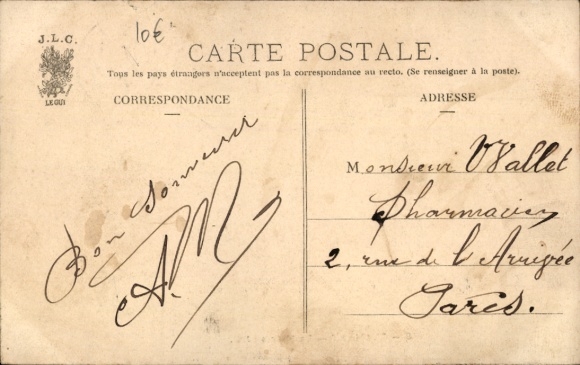 10€
J.L.C.
LE GUI
CARTE POSTALE.
Tous les pays étrangers n'acceptent pas la correspondance au recto. (Se renseigner à la poste).
CORRESPONDANCE
ADRESSE
Bon Souvenir
A.M
Monsieur Vallet
Pharmacien
2, rue de l'Arrivée
Paris.